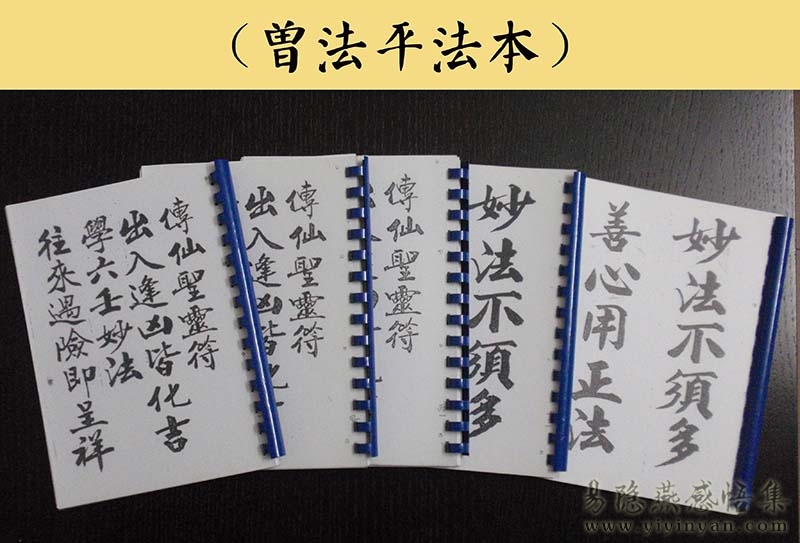 （曾法平法本）
妙法不須多
善心用正法
妙法不須多
傳仙聖靈符
傳仙聖靈符
出入逢凶皆化
傳仙聖靈符
出入逢凶皆化吉
學六壬妙法
往來遇險即呈祥
易隐燕感悟集
www.yiyinyan.com